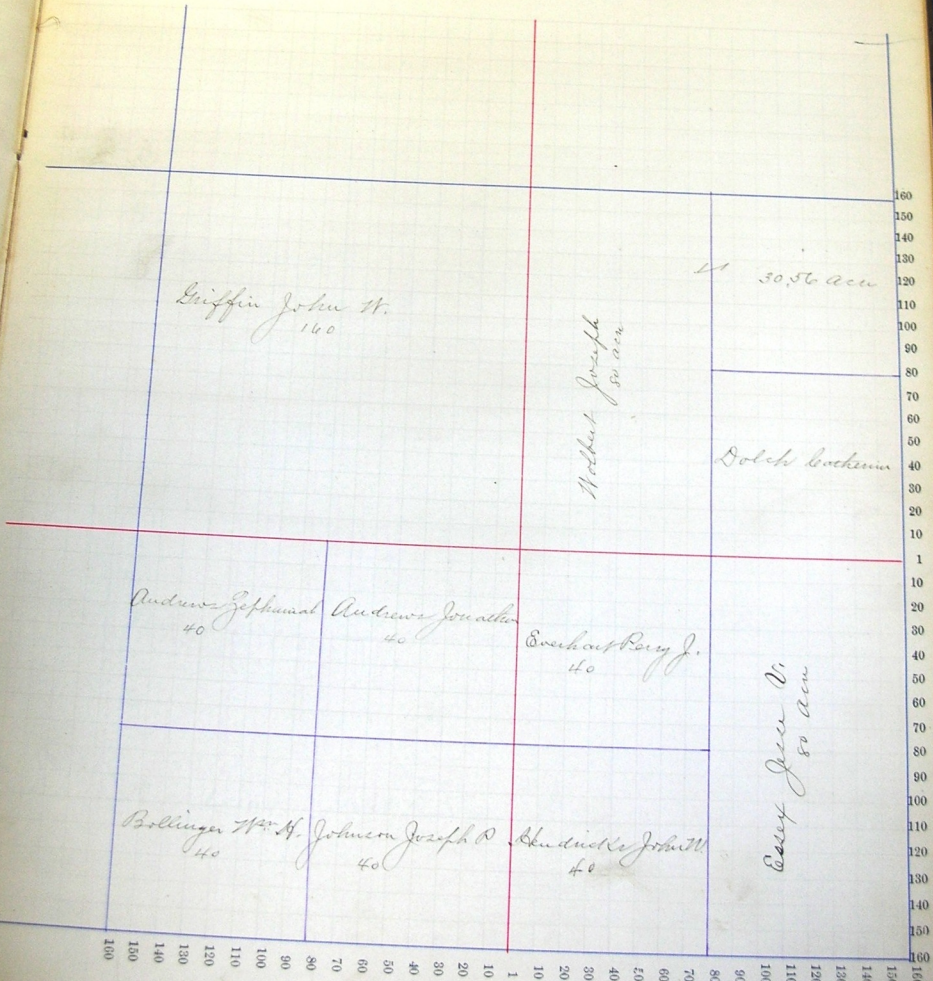 Griffin John W.
160
Wolbert Joseph
80 acre
30,56 acre
Dolch Catherine
Andrews Zephaniah
40
Andrews Jonathan
40
Everhart Perry J.
40
Essex Jesse V.
80 acre
Bollinger Wm H.
40
Johnson Joseph P
40
Hendricks John W.
40
160
150
140
130
120
110
100
90
80
70
60
50
40
30
20
10
1
10
20
30
40
50
60
70
80
90
100
110
120
130
140
150
160
160 150 140 130 120 110 100 90 80 70 60 50 40 30 20 10 1 10 20 30 40 50 60 70 80 90 100 110 120 130 140 150 160